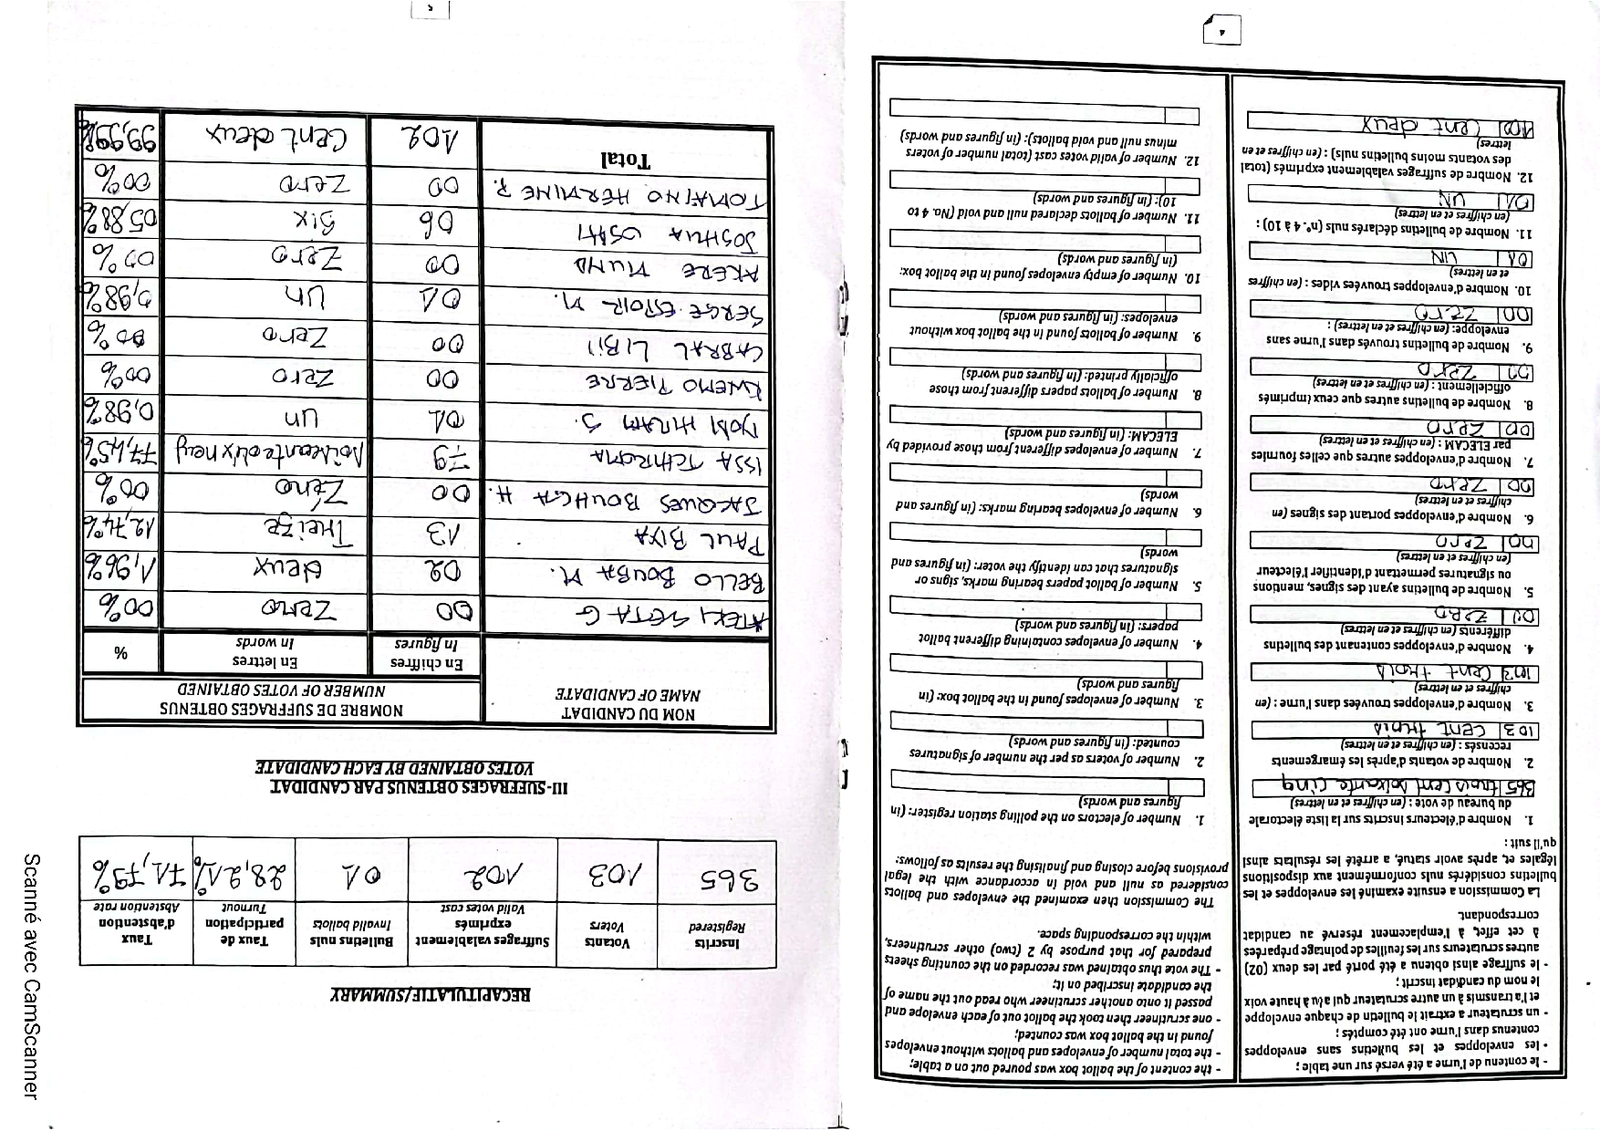 - le contenu de l'urne a été versé sur une table ;
- les enveloppes et les bulletins sans enveloppes
contenus dans l'urne ont été comptés ;
- un scrutateur a extrait le bulletin de chaque enveloppe
et l'a transmis à un autre scrutateur qui a lu à haute voix
le nom du candidat inscrit ;
- le suffrage ainsi obtenu a été porté par les deux (02)
autres scrutateurs sur les feuilles de pointage préparées
à cet effet, à l'emplacement réservé au candidat
correspondant.
La Commission a ensuite examiné les enveloppes et les
bulletins considérés nuls conformément aux dispositions
légales et, après avoir statué, a arrêté les résultats ainsi
qu'il suit :
1. Nombre d'électeurs inscrits sur la liste électorale
du bureau de vote : (en chiffres et en lettres)
365 trois cent soixante cinq
2. Nombre de votants d'après les émargements
recensés : (en chiffres et en lettres)
103 cent trois
3. Nombre d'enveloppes trouvées dans l'urne : (en
chiffres et en lettres)
103 cent trois
4. Nombre d'enveloppes contenant des bulletins
différents (en chiffres et en lettres)
zero
5. Nombre de bulletins ayant des signes, mentions
ou signatures permettant d'identifier l'électeur
(en chiffres et en lettres)
00 zero
6. Nombre d'enveloppes portant des signes (en
chiffres et en lettres)
00 zero
7. Nombre d'enveloppes autres que celles fournies
par ELECAM : (en chiffres et en lettres)
00 zero
8. Nombre de bulletins autres que ceux imprimés
officiellement : (en chiffres et en lettres)
00 zero
9. Nombre de bulletins trouvés dans l'urne sans
enveloppe: (en chiffres et en lettres) :
00 zero
10. Nombre d'enveloppes trouvées vides : (en chiffres
et en lettres)
01 UN
11. Nombre de bulletins déclarés nuls (n°. 4 à 10) :
(en chiffres et en lettres)
01 UN
12. Nombre de suffrages valablement exprimés (total
des votants moins bulletins nuls) : (en chiffres et en
lettres)
102 Cent deux
- the content of the ballot box was poured out on a table;
- the total number of envelopes and ballots without envelopes
found in the ballot box was counted;
- one scrutineer then took the ballot out of each envelope and
passed it onto another scrutineer who read out the name of
the candidate inscribed on it;
- The vote thus obtained was recorded on the counting sheets
prepared for that purpose by 2 (two) other scrutineers,
within the corresponding space.
The Commission then examined the envelopes and ballots
considered as null and void in accordance with the legal
provisions before closing and finalising the results as follows:
1. Number of electors on the polling station register: (in
figures and words)
2. Number of voters as per the number of signatures
counted: (in figures and words)
3. Number of envelopes found in the ballot box: (in
figures and words)
4. Number of envelopes containing different ballot
papers: (in figures and words)
5. Number of ballot papers bearing marks, signs or
signatures that can identify the voter: (in figures and
words)
6. Number of envelopes bearing marks: (in figures and
words)
7. Number of envelopes different from those provided by
ELECAM: (in figures and words)
8. Number of ballots papers different from those
officially printed: (in figures and words)
9. Number of ballots found in the ballot box without
envelopes: (in figures and words)
10. Number of empty envelopes found in the ballot box:
(in figures and words)
11. Number of ballots declared null and void (No. 4 to
10): (in figures and words)
12. Number of valid votes cast (total number of voters
minus null and void ballots): (in figures and words)
4
RECAPITULATIF/SUMMARY
Inscrits Registered
Votants Voters
Suffrages valablement exprimés Valid votes cast
Bulletins nuls Invalid ballots
Taux de participation Turnout
Taux d'abstention Abstention rate
365 103 102 01 28,21% 71,79%
III- SUFFRAGES OBTENUS PAR CANDIDAT
VOTES OBTAINED BY EACH CANDIDATE
NOM DU CANDIDAT
NAME OF CANDIDATE
NOMBRE DE SUFFRAGES OBTENUS
NUMBER OF VOTES OBTAINED
En chiffres In figures
En lettres In words
%
ATEKI SETA G 00 Zero 00%
BELLO BOUBA M. 02 deux 1,96%
PAUL BIYA 13 Treize 12,74%
JACQUES BOUHGA H. 00 Zéro 00%
ISSA TCHIROMA 79 77,45%
IYODI HIRAM S. 01 UN 0,98%
KWEMO PIERRE 00 Zero 00%
CABRAL LIBII 00 Zero 00%
SERGE ESPOIR M. 01 UN 0,98%
AKERE MUNA 00 Zero 00%
JOSHUA OSIH 06 Six 05,88%
TOMAINO HERMINE P. 00 Zero 00%
Total 102 Cent deux 99,99%
5
Scanné avec CamScanner